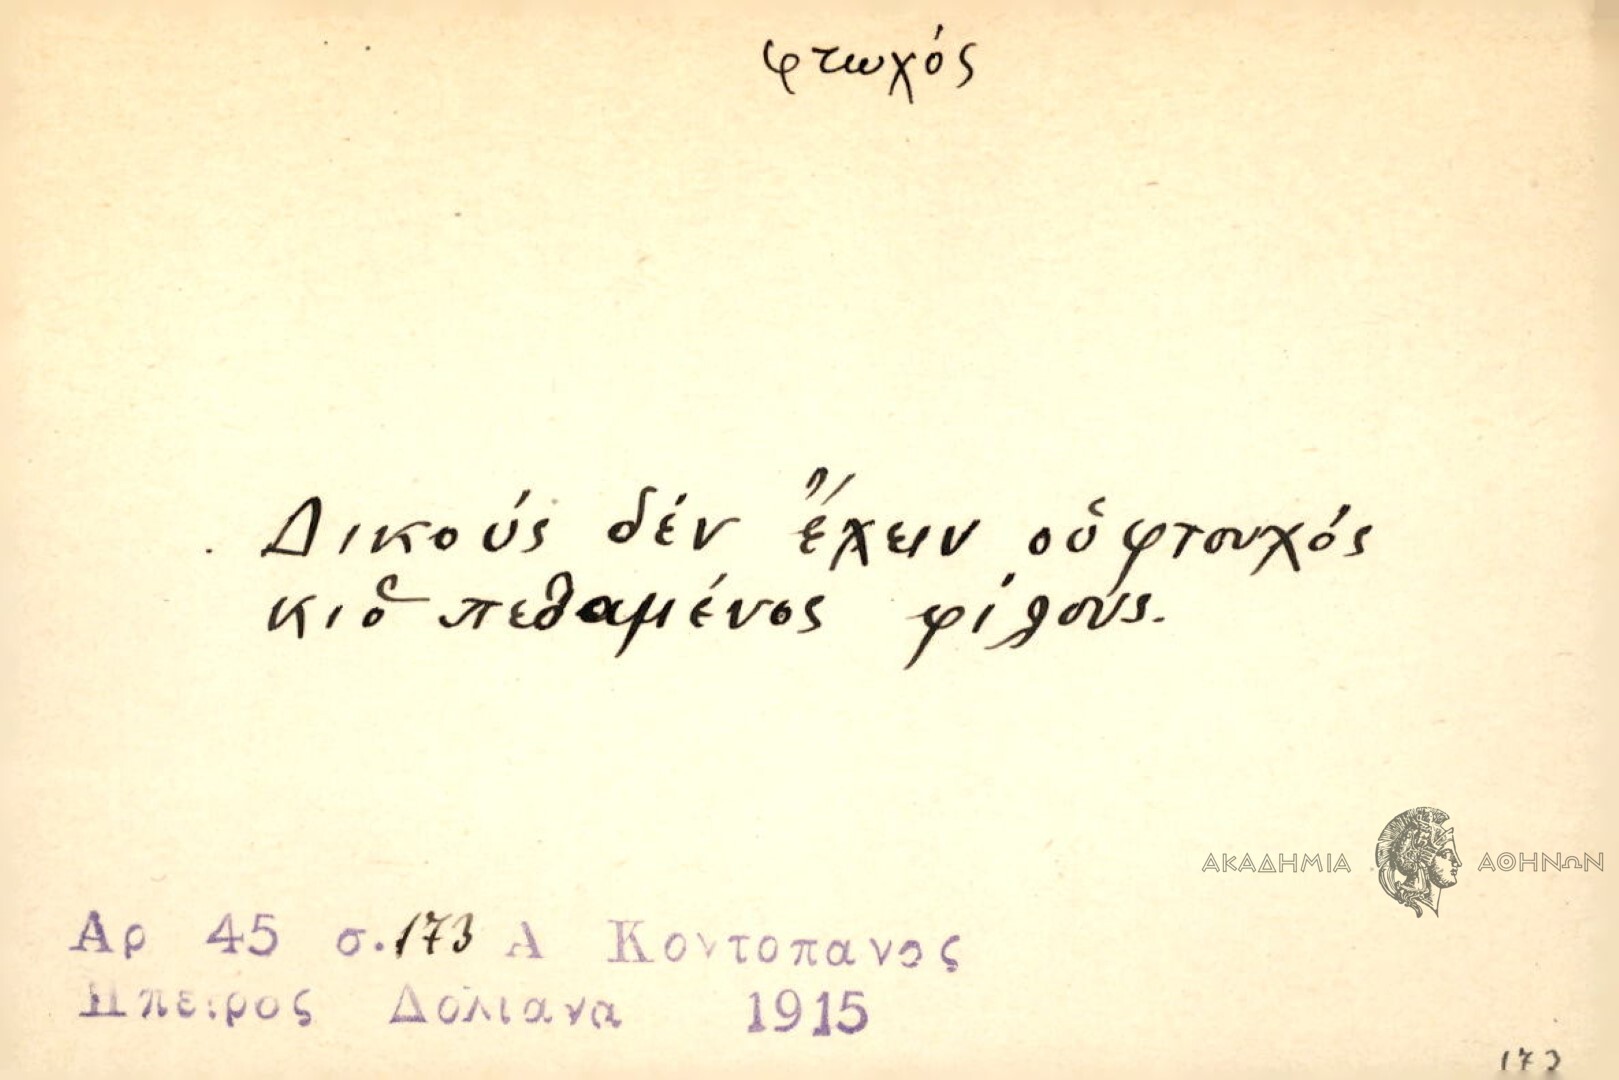 φτωχός
Δικούς δέν ἔχειν οὑ φτουχός
κι ὁ πεθαμένος φίλους.
ΑΚΑΔΗΜΙΑ ΑΘΗΝΩΝ
Αρ 45 σ. 173 Α Κοντοπανος
Ηπειρος Δολιανα 1915
173